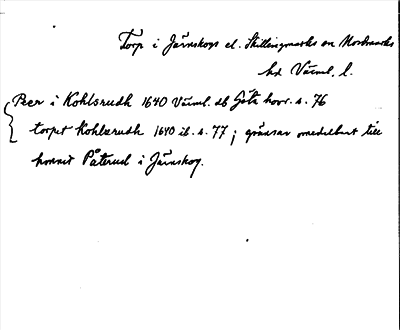 Torp i Järnskogs el. Skillingmarks sn Nordmarks
hd Värml. l.
Peer i Kohlsrudh 1640 Värml. db Göta hovr. s. 76
torpet Kohlsrudh 1640 ib. s. 77; gränsar omedelbart till
hemmet Påterud i Järnskog.